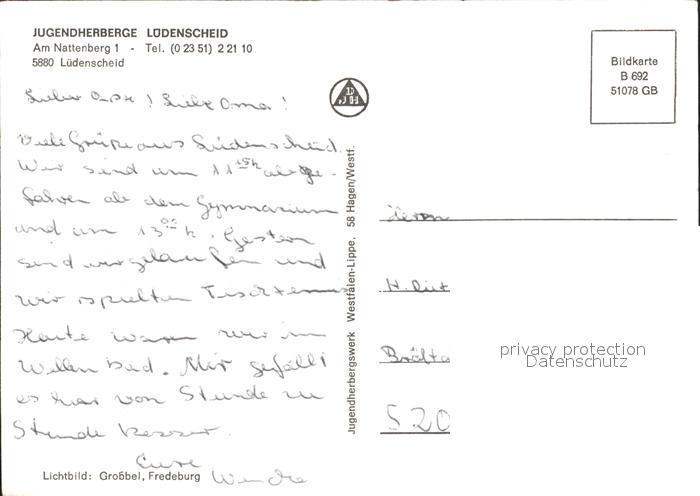 JUGENDHERBERGE LÜDENSCHEID
Am Nattenberg 1 - Tel. (0 23 51) 2 21 10
5880 Lüdenscheid
Bildkarte
B 692
51078 GB
DJH
Lieber Opa! Liebe Oma!
Viele Grüße aus Lüdenscheid.
Wir sind um 11 15 h abge-
fahren ab dem Gymnasium
und um 13 h. Gestern
sind wir gelaufen und
wir spielten Tischtennis
Heute waren wir im
Wellenbad. Mir gefällt
es hier von Stunde zu
Stunde besser.
Eure
Lichtbild: Großbel, Fredeburg
Jugendherbergswerk Westfalen-Lippe, 58 Hagen/Westf.
Herrn
H.
520
privacy protection
Datenschutz